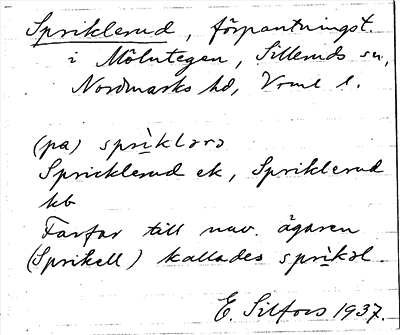 Spriklerud, förpantningst.
i Mölntegen, Silleruds sn,
Nordmarks hd, Vrml l.
(pa) sprìklərə
Spricklerud ek, Spriklerud
kb
Farfar till nuv. ägaren
(Sprikell) kallades sprìkəl.
E. Silfors 1937.